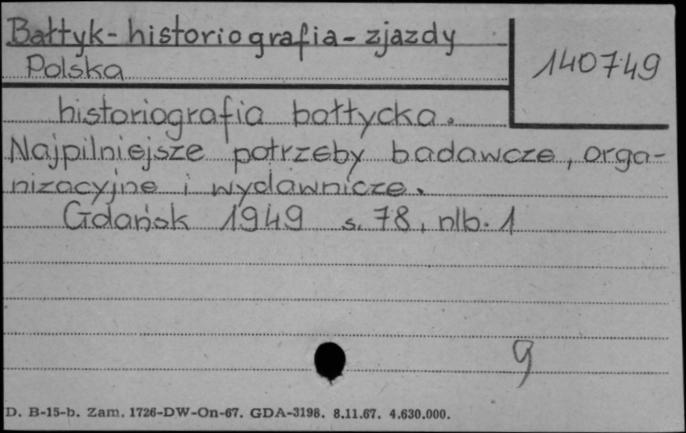 Bałtyk - historiografia - zjazdy
140749
Polska
historiografia bałtycka.
Najpilniejsze potrzeby badawcze, orga-
nizacyjne i wydawnicze.
Gdańsk 1949 s. 78, nlb. 1
9
D. B-15-b. Zam. 1726-DW-On-67. GDA-3198. 8.11.67. 4.630.000.